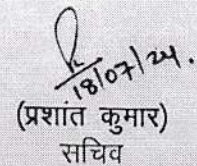 18/07/24.
(प्रशांत कुमार)
सचिव